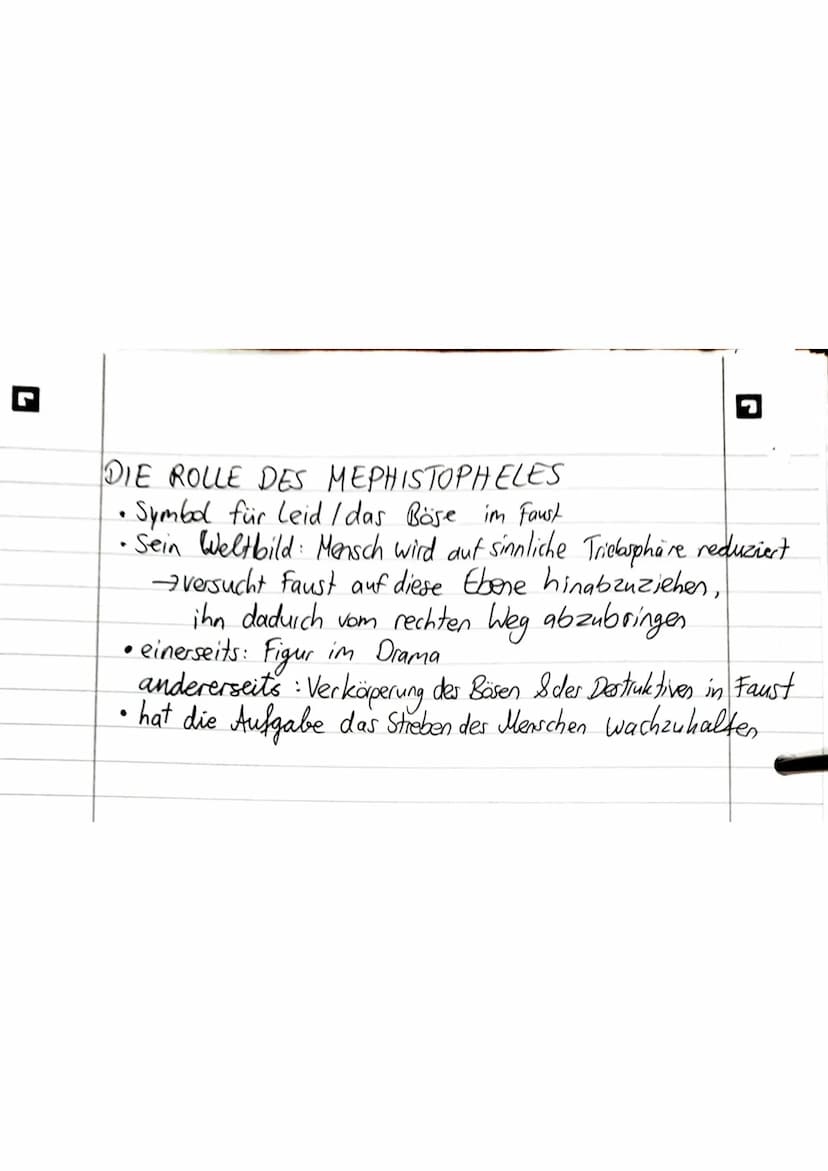 DIE ROLLE DES MEPHISTOPHELES
• Symbol für Leid / das Böse im Faust
• Sein Weltbild: Mensch wird auf sinnliche Triebsphäre reduziert
→ versucht Faust auf diese Ebene hinabzuziehen,
ihn dadurch vom rechten Weg abzubringen
• einerseits: Figur im Drama
andererseits: Verkörperung des Bösen & des Destruktiven in Faust
• hat die Aufgabe das Streben des Menschen wachzuhalten